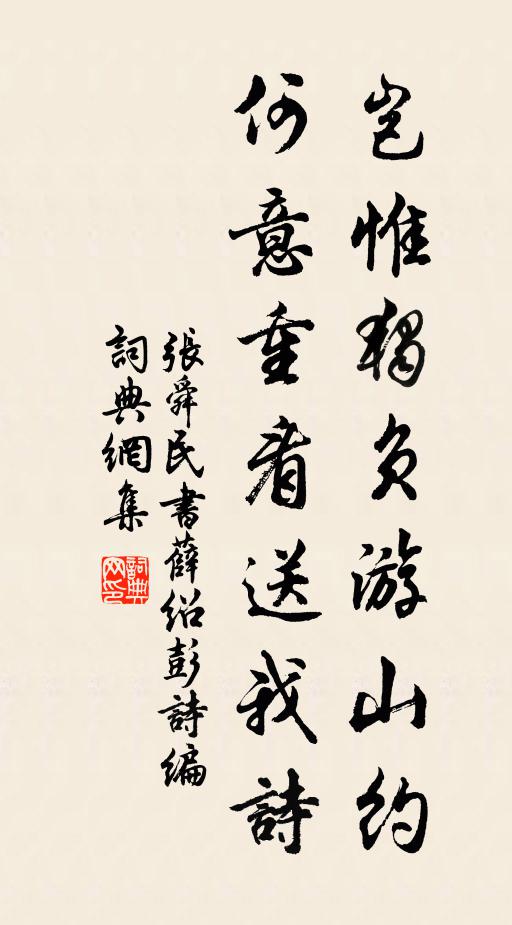 豈惟獨負游山約
何意重看送我詩
張舜民書薛绍彭詩编
詞典網集
詞典网印